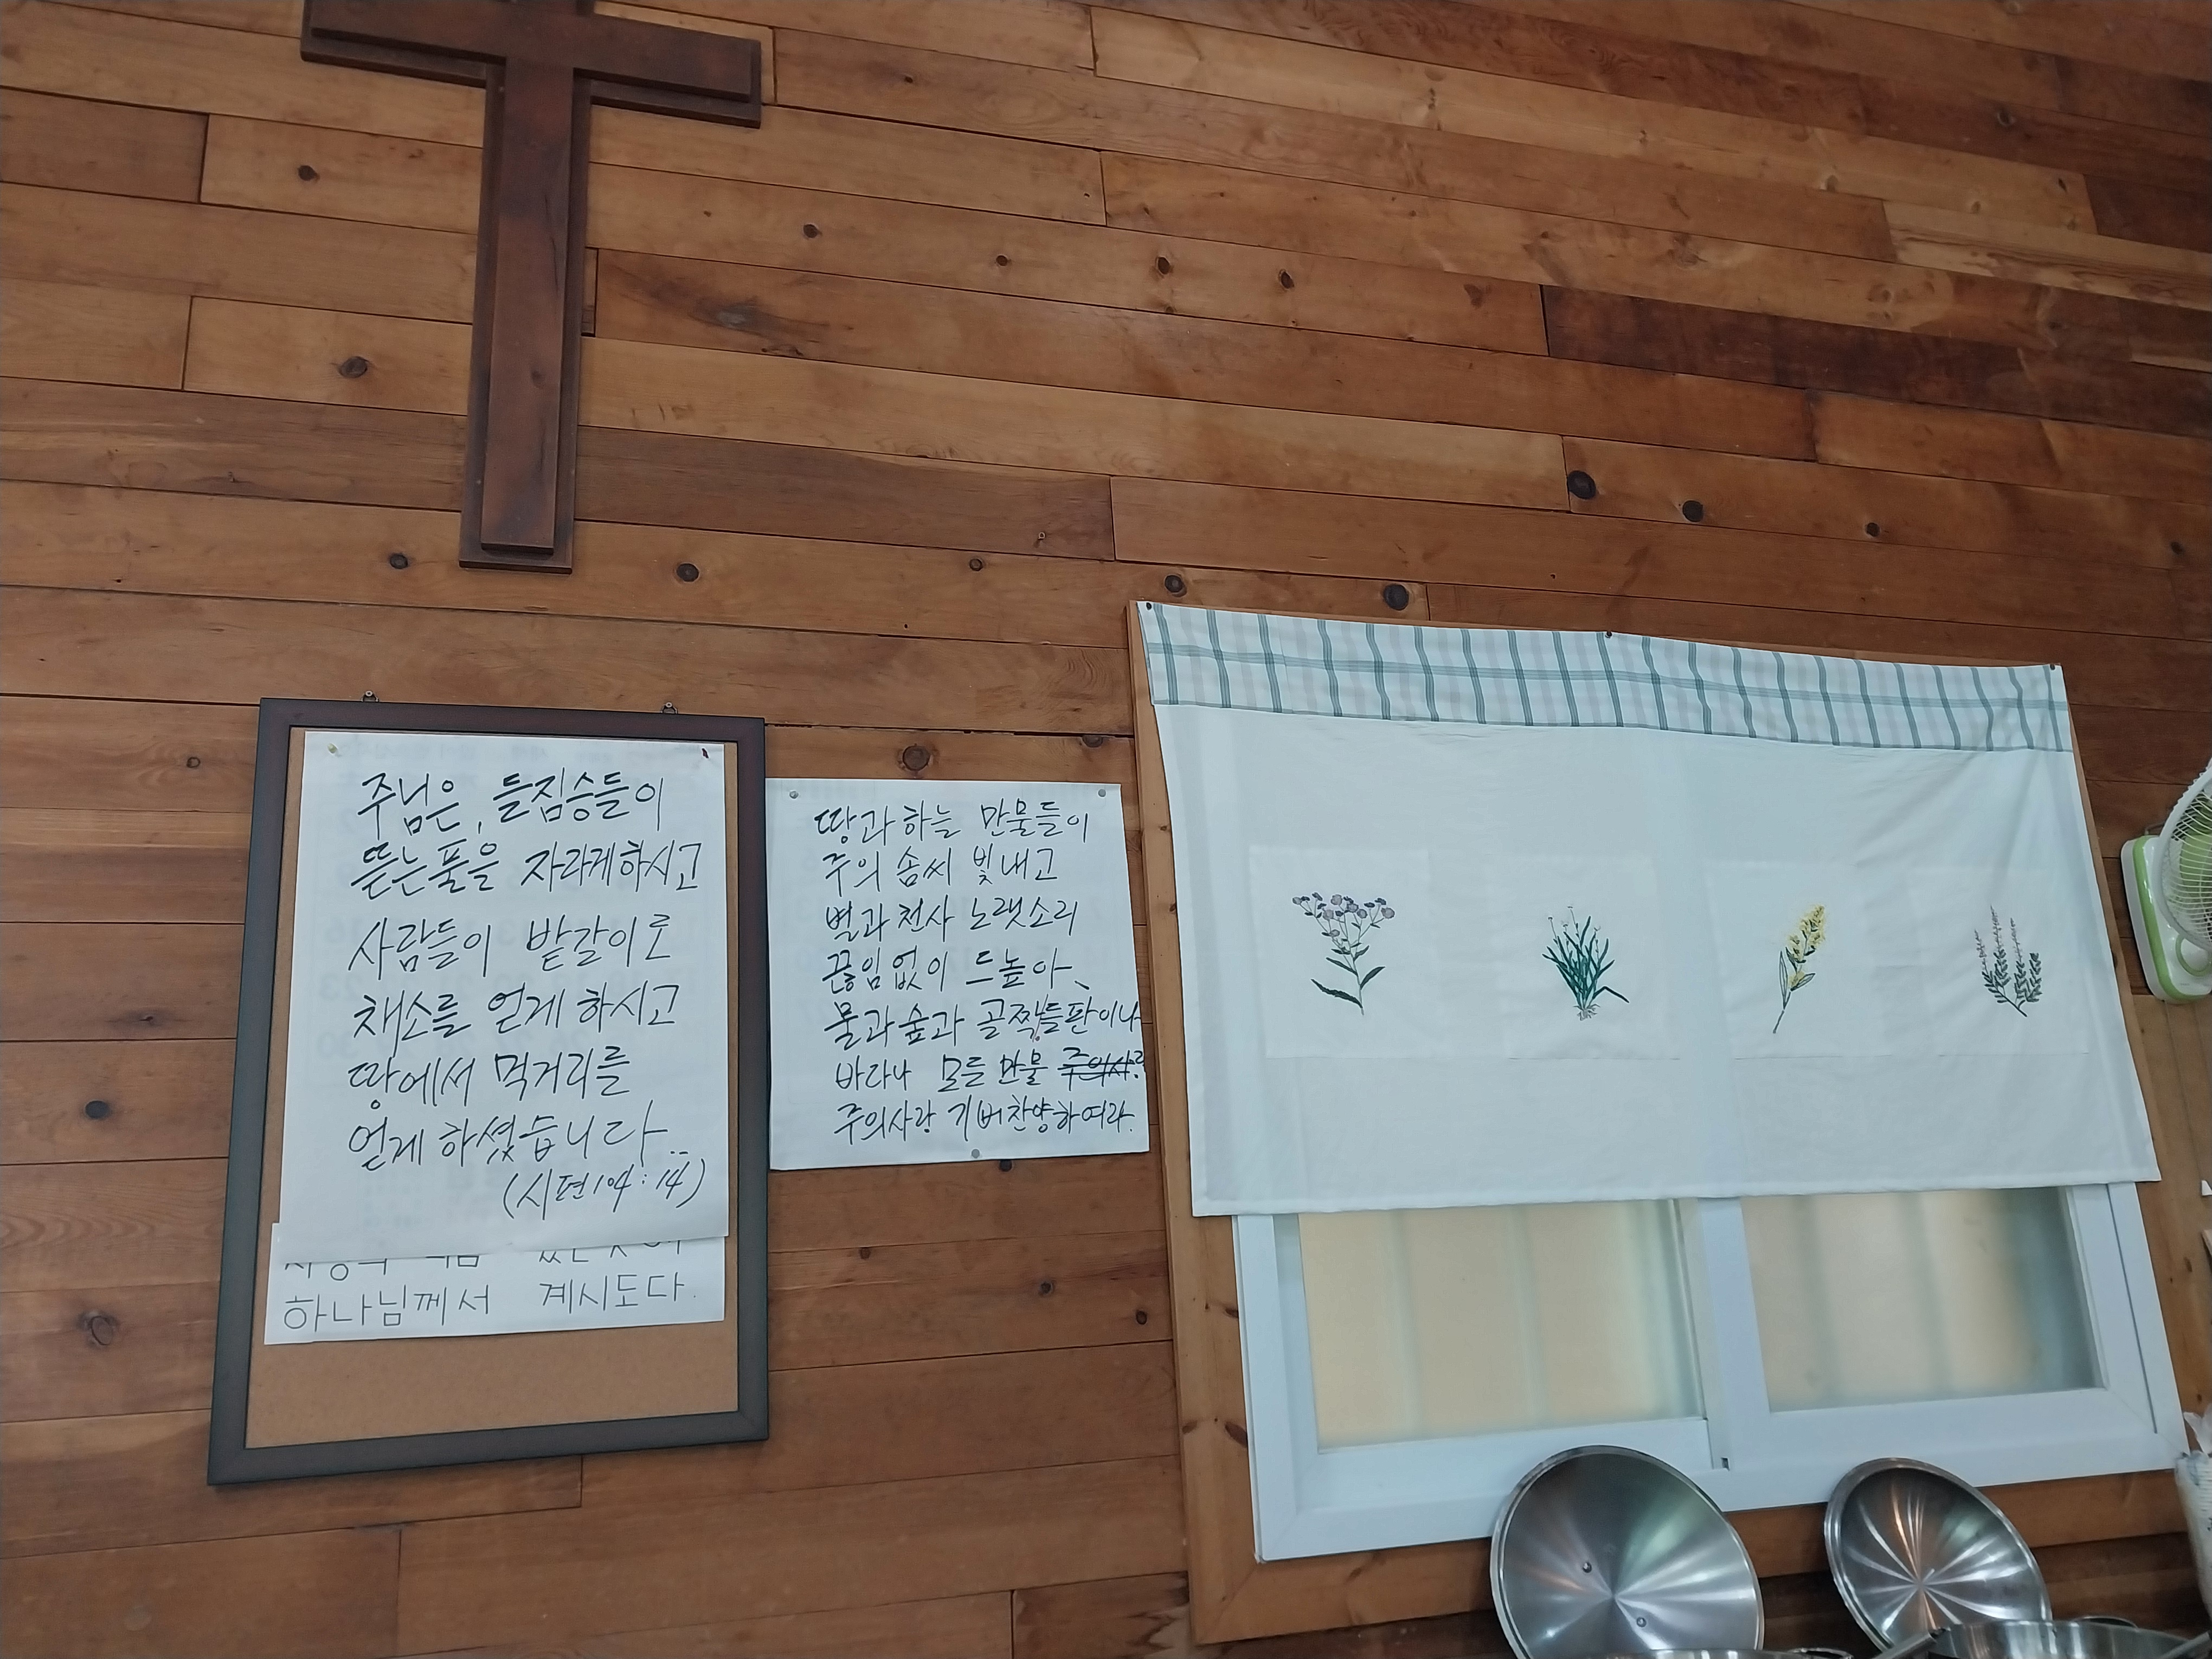 주님은, 들짐승들이
뜯는풀을 자라게하시고
사람들이 밭갈이로
채소를 얻게 하시고
땅에서 먹거리를
얻게 하셨습니다..
(시편104:14)
하나님께서 계시도다.
땅과 하늘 만물들이
주의 솜씨 빛내고
별과 천사 노랫소리
끊임없이 드높아、
물과숲과 골짝들판이나
바다나 모든 만물
주의사랑 기뻐찬양하여라.